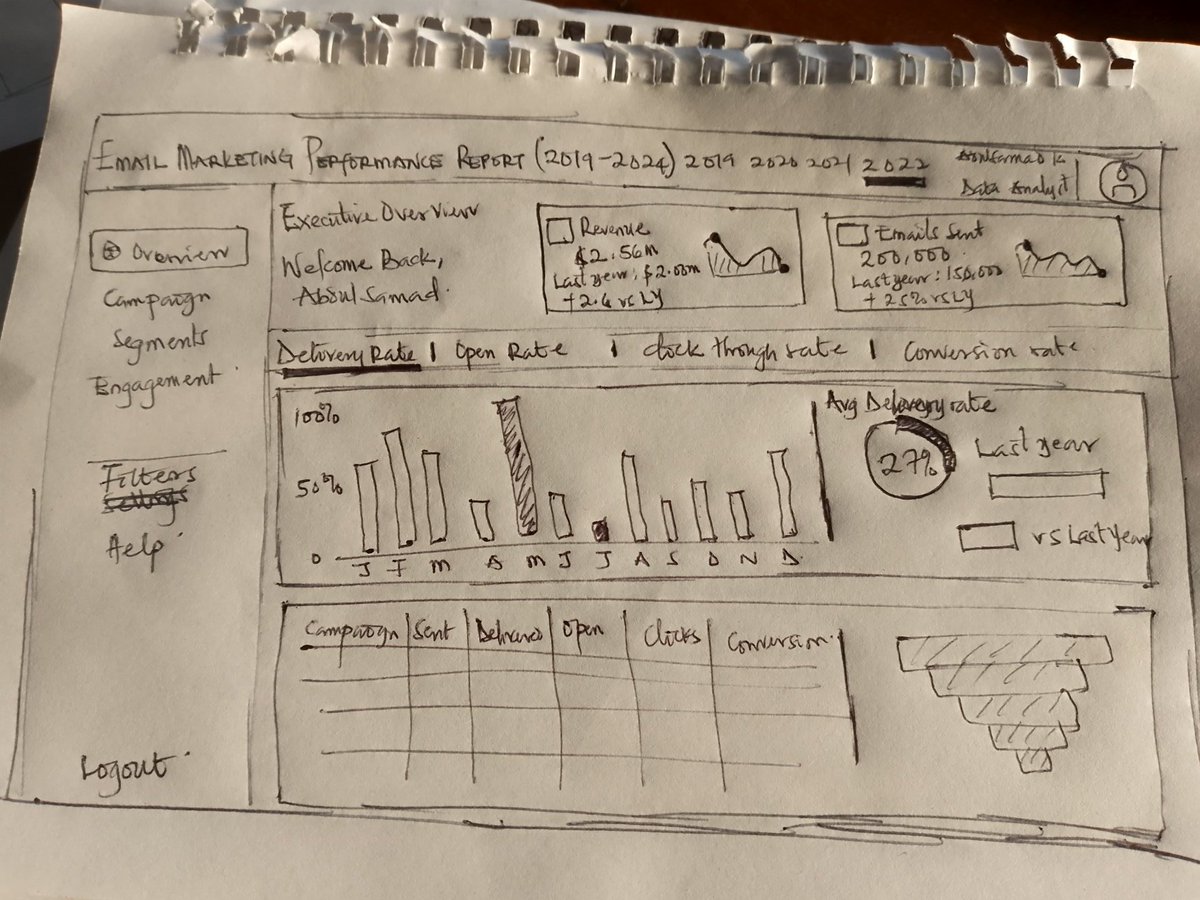 EMAIL MARKETING PERFORMANCE REPORT (2019-2024) 2019 2020 2021 2022
Data Analyst
Overview
Campaign
Segments
Engagement
Filters
Settings
Help
Logout
Executive Overview
Welcome Back,
Abdul Samad.
Revenue
$2.56m
Last year: $2.00m
+2.6 vs LY
Emails Sent
200,000
Last year: 150,000
+ 25% vs LY
Delivery Rate | Open Rate | Click through rate | Conversion rate
100%
50%
0
J F M A M J J A S O N D
Avg Delivery rate
27%
Last year
vs Last Year
Campaign Sent Delivered Open Clicks Conversion